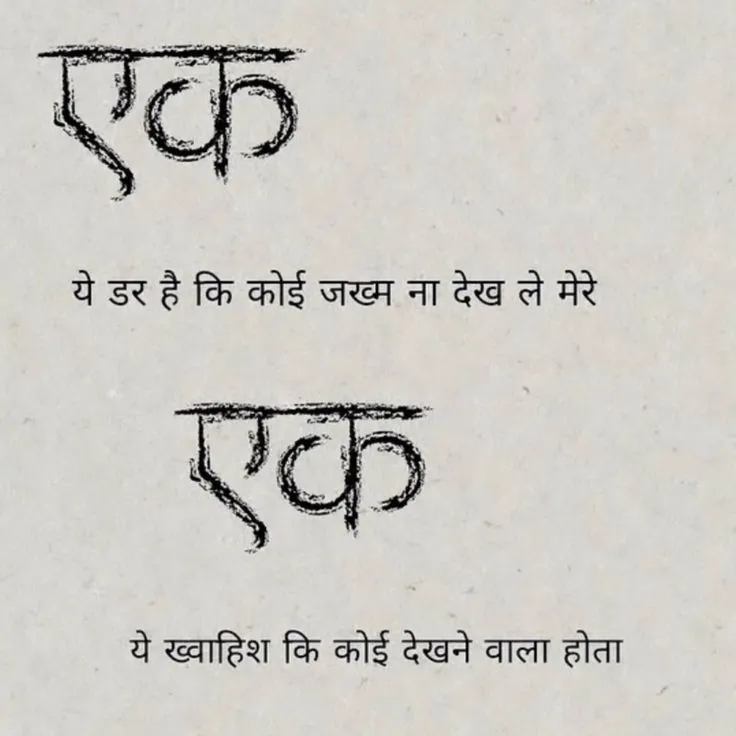 एक
ये डर है कि कोई जख्म ना देख ले मेरे
एक
ये ख्वाहिश कि कोई देखने वाला होता